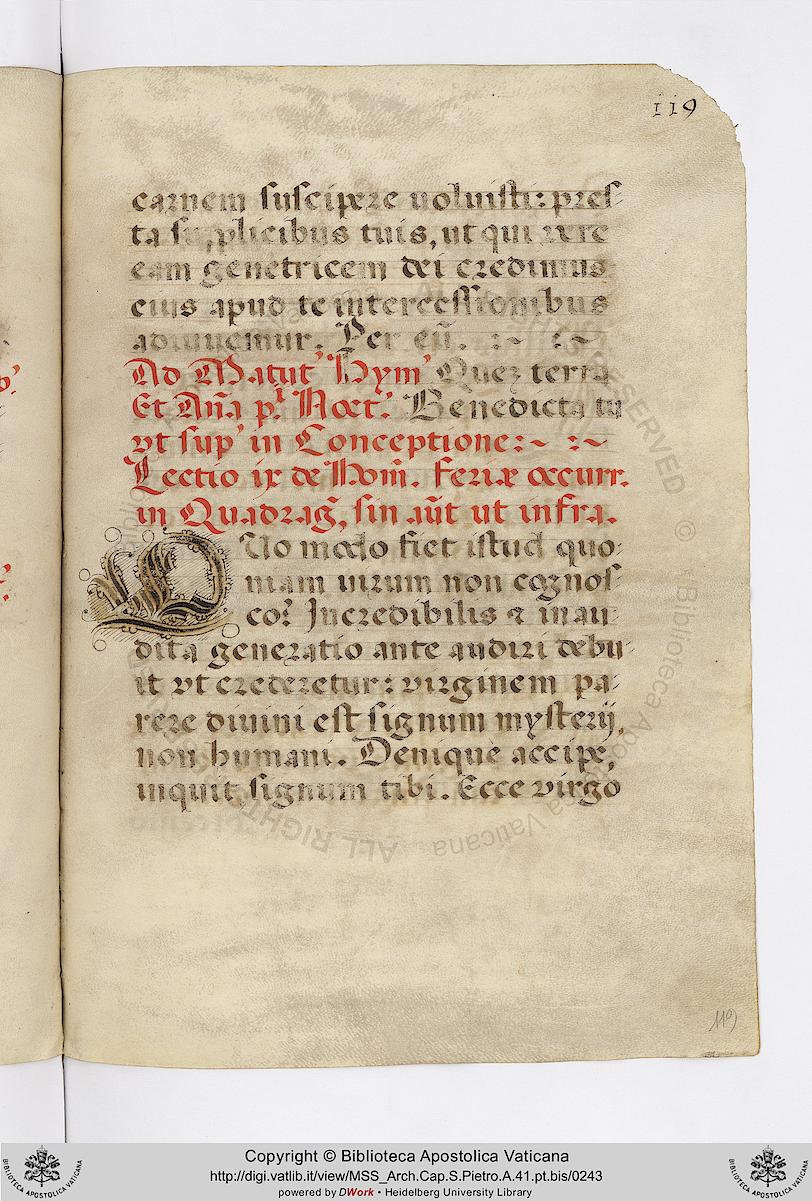 119
carnem suscipere uoluisti: pres-
ta supplicibus tuis, ut qui uere
eam genetricem dei credimus
eius apud te intercessionibus
adiuuemur. Per eũ. :~ :~
Ad Matut' Hym' Quez terra
Et Aña pr̃. Noct'. Benedicta tu
vt sup' in Conceptione:~ :~
Lectio ix de Hom̃. Feriæ occurr.
in Quadrag̃, sin aũt ut infra.
QUo modo fiet istud quo-
niam uirum non cognos-
co? Incredibilis & inau-
dita generatio ante audiri debu-
it vt crederetur: virginem pa-
rere diuini est signum mysterij,
non humani. Denique accipe,
inquit, signum tibi. Ecce virgo
119
Copyright © Biblioteca Apostolica Vaticana
http://digi.vatlib.it/view/MSS_Arch.Cap.S.Pietro.A.41.pt.bis/0243
powered by DWork • Heidelberg University Library